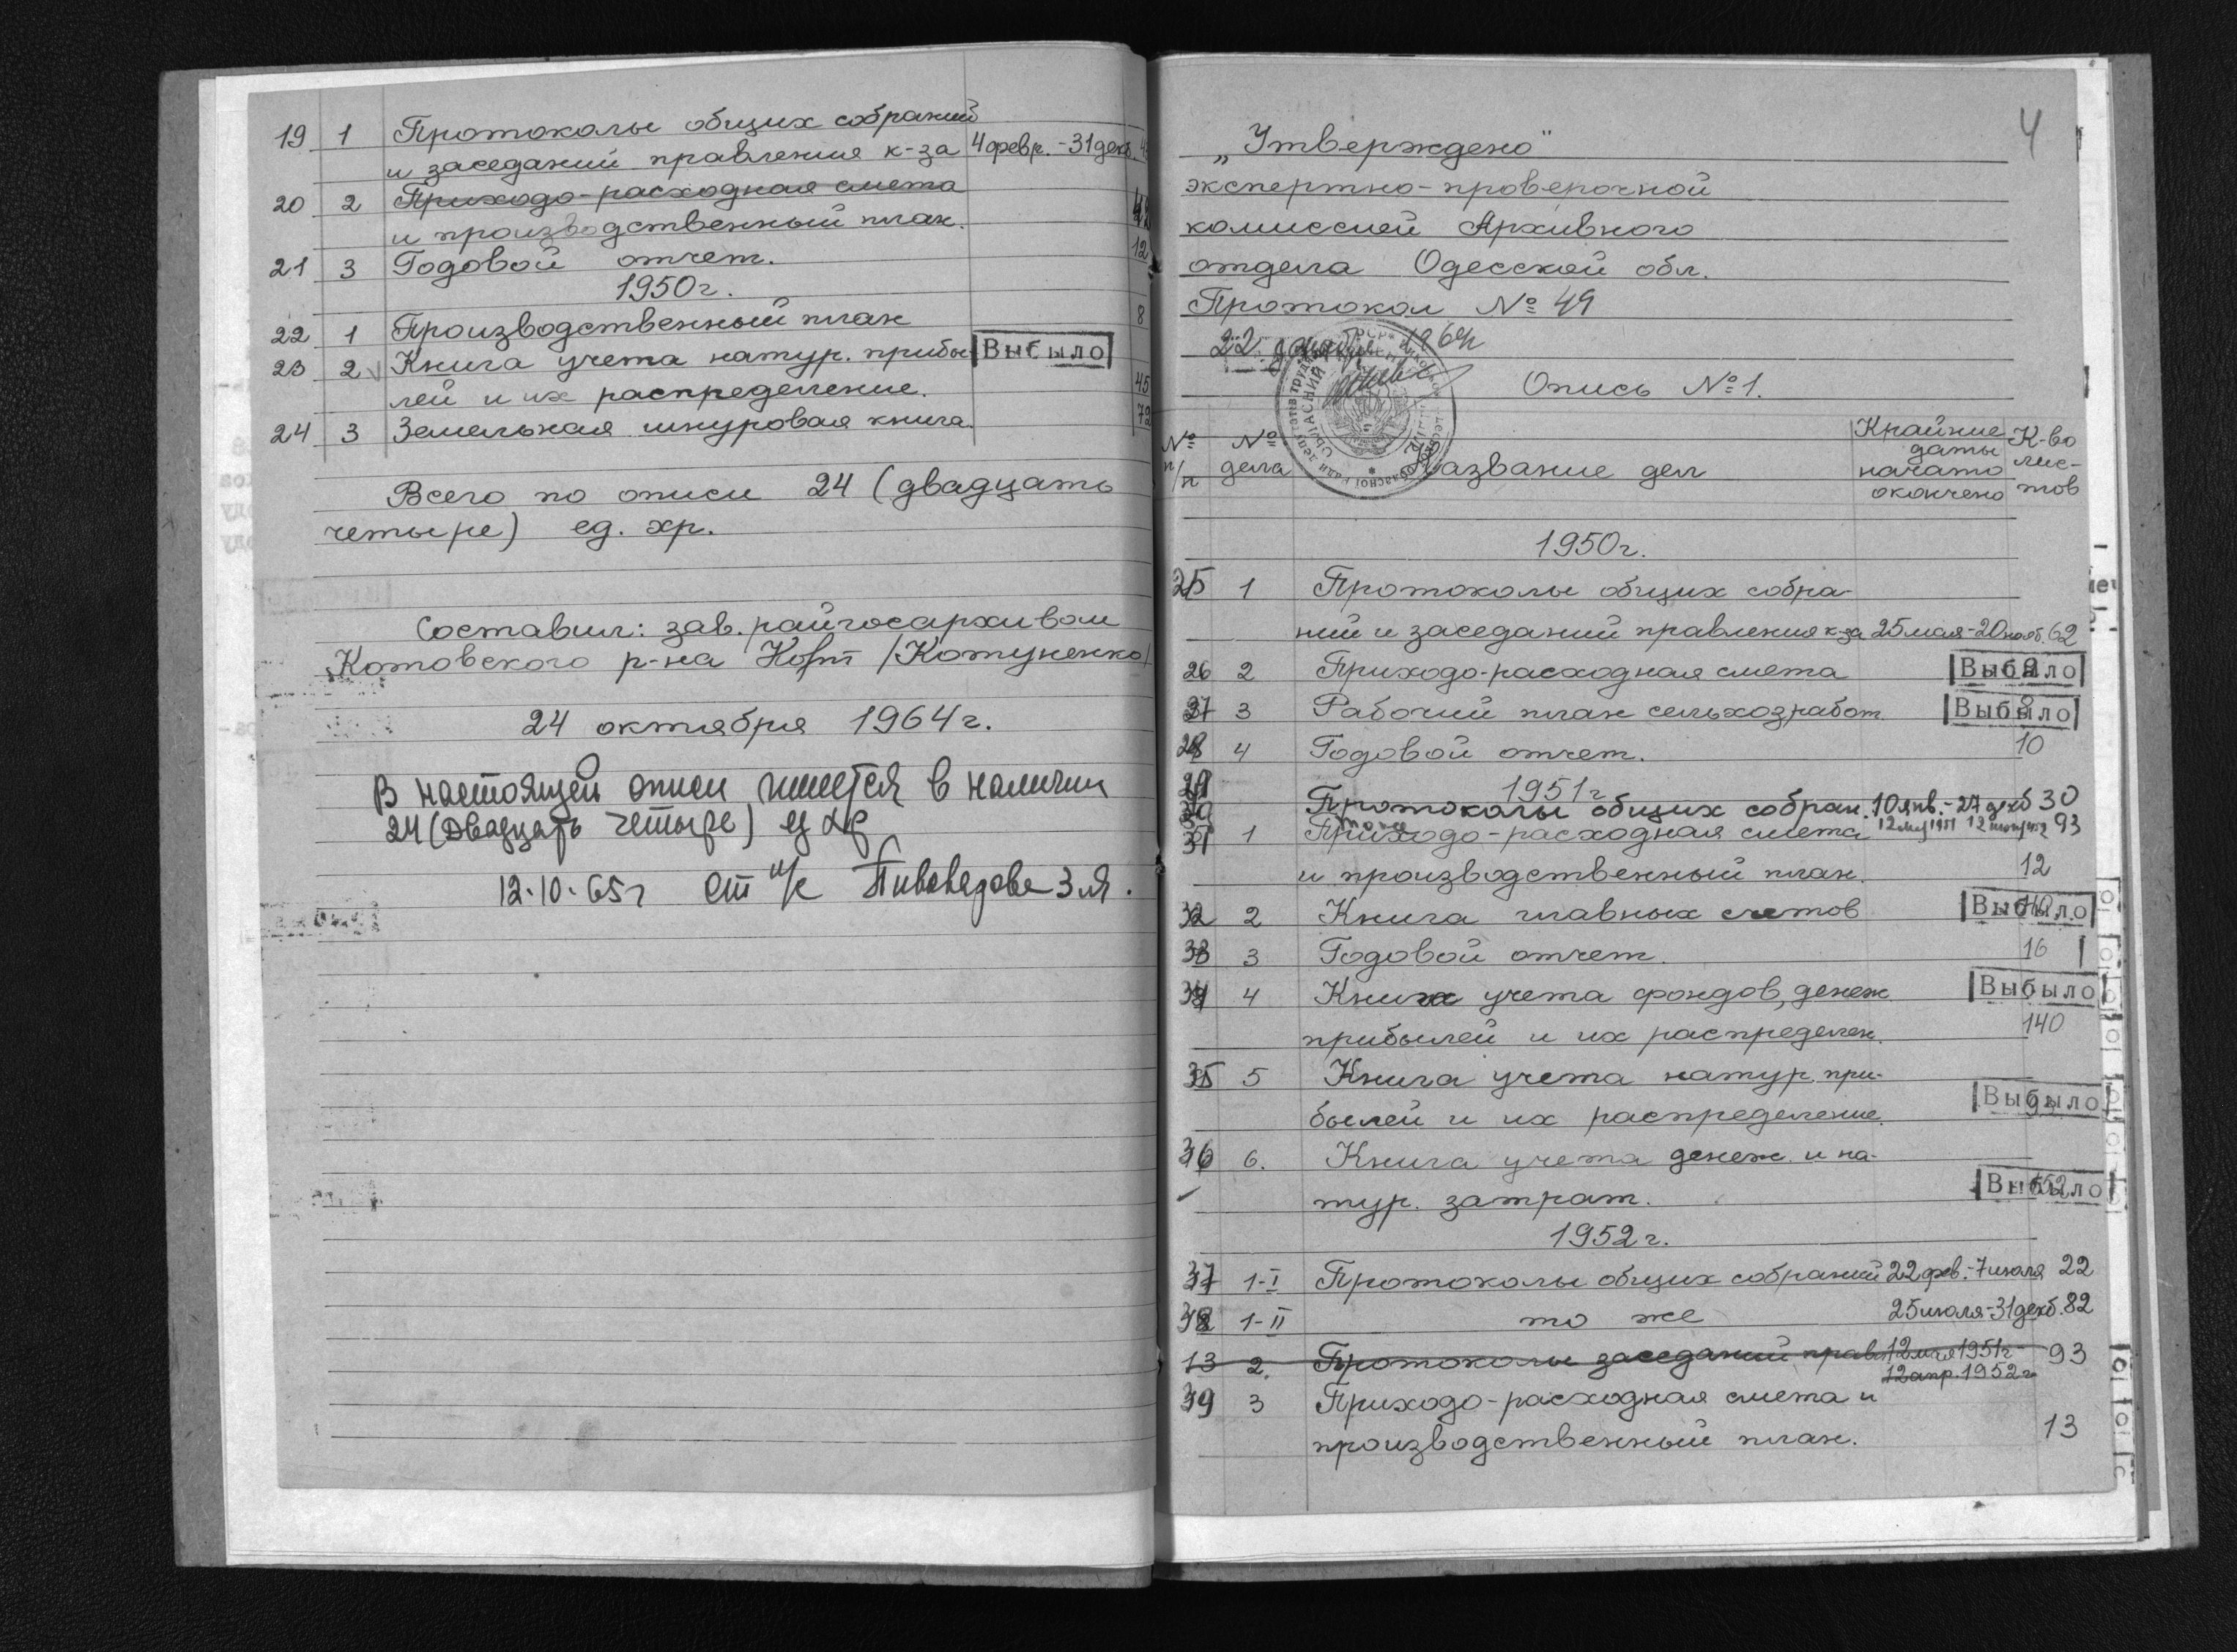 19 1 Протоколы общих собраний
и заседаний правления к-за 4 февр. - 31 дек.
20 2 Приходо-расходная смета
и производственный план.
12
21 3 Годовой отчет.
1950г.
8
22 1 Производственный план
23 2 Книга учета натур. прибы Выбыло
лей и их распределение. 45
24 3 Земельная шнуровая книга. 72
Всего по описи 24 (двадцать
четыре) ед. хр.
Составил: зав. райгосархивом
Котовского р-на /Котуненко/
24 октября 1964г.
В настоящей описи имеется в наличии
24 (двадцать четыре) ед хр
12.10.65г ст н/с
4
„Утверждено"
экспертно-проверочной
комиссией Архивного
отдела Одесской обл.
Протокол № 49
22 декабря 1964г
Опись №1.
№ п/п № дела Название дел Крайние даты начато окончено К-во лис-тов
1950г.
25 1 Протоколы общих собра-
ний и заседаний правления к-за 25 мая - 20 нояб. 62
26 2 Приходо-расходная смета Выбыло
27 3 Рабочий план сельхозработ. Выбыло 8
28 4 Годовой отчет. 10
29 1951г
30 Протоколы общих собран. 10 янв. - 27 дек 30
то же 93
31 1 Приходо-расходная смета
и производственный план. 12
32 2 Книга главных счетов Выбыло
33 3 Годовой отчет. 16
34 4 Книга учета фондов, денеж Выбыло
прибылей и их распределен. 140
35 5 Книга учета натур. при-
былей и их распределение. Выбыло
36 6. Книга учета денеж. и на-
тур. затрат. Выбыло
1952г.
37 1-I Протоколы общих собраний 22 фев. - 7 июля 22
38 1-II то же 25 июля - 31 дек. 82
13 2. Протоколы заседаний прав. 12 мая 1951г - 93
12 апр. 1952г
39 3 Приходо-расходная смета и
производственный план. 13